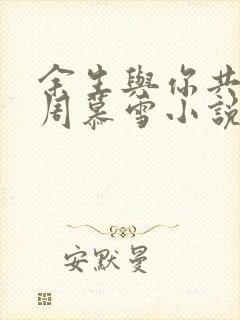 余生與你共
周慕雪小說
安默曼